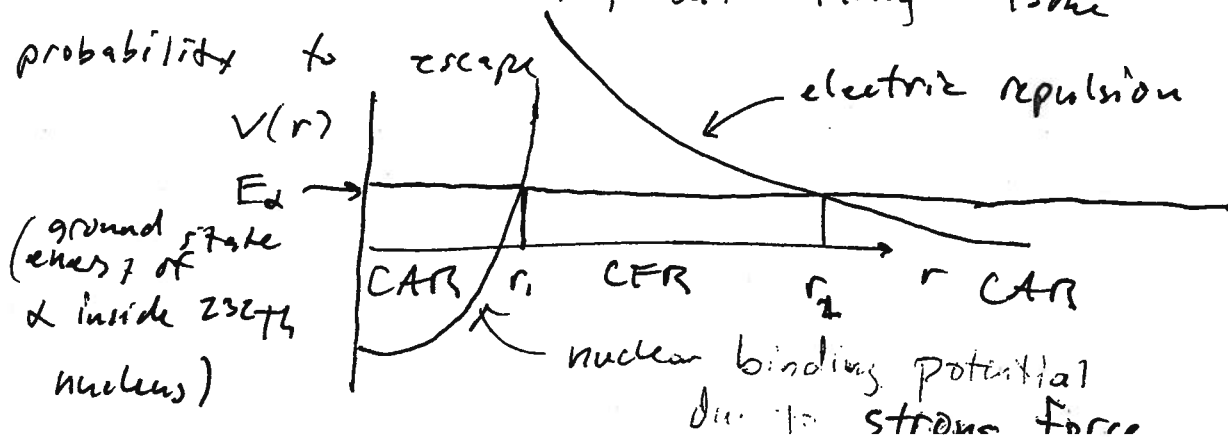 some
probability to escape
electric repulsion
V(r)
Eα
(ground state
energy of
α inside 232Th
nucleus)
CAR r₁ CFR r₂ r CAR
nuclear binding potential
due to strong force